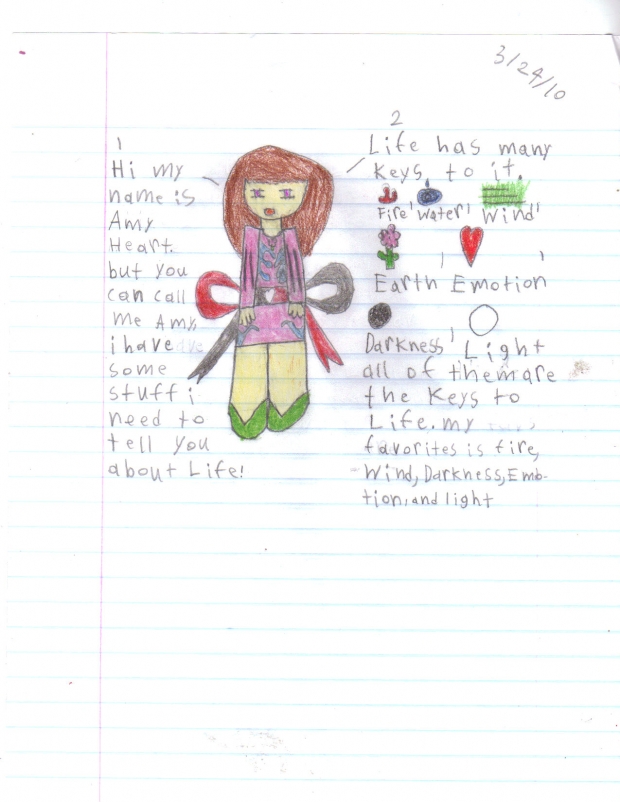 3/24/10
1
Hi my
name is
Amy
Heart.
but you
can call
me Amy,
i have
some
stuff i
need to
tell you
about Life!
2
Life has many
Keys, to it.
Fire' Water' Wind'
Earth' Emotion'
Darkness' Light
all of them are
the Keys to
Life. my
favorites is fire,
Wind, Darkness, Emo-
tion, and light